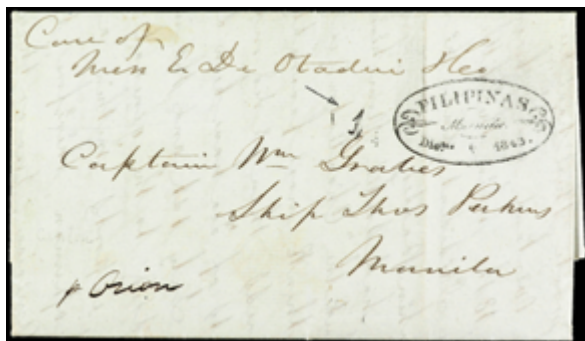 Care of
Mess E. De Otadui & Co
FILIPINAS
Manila
Dice 1843.
Captain Wm Graves
Ship Thos Perkins
Manila
p Orion